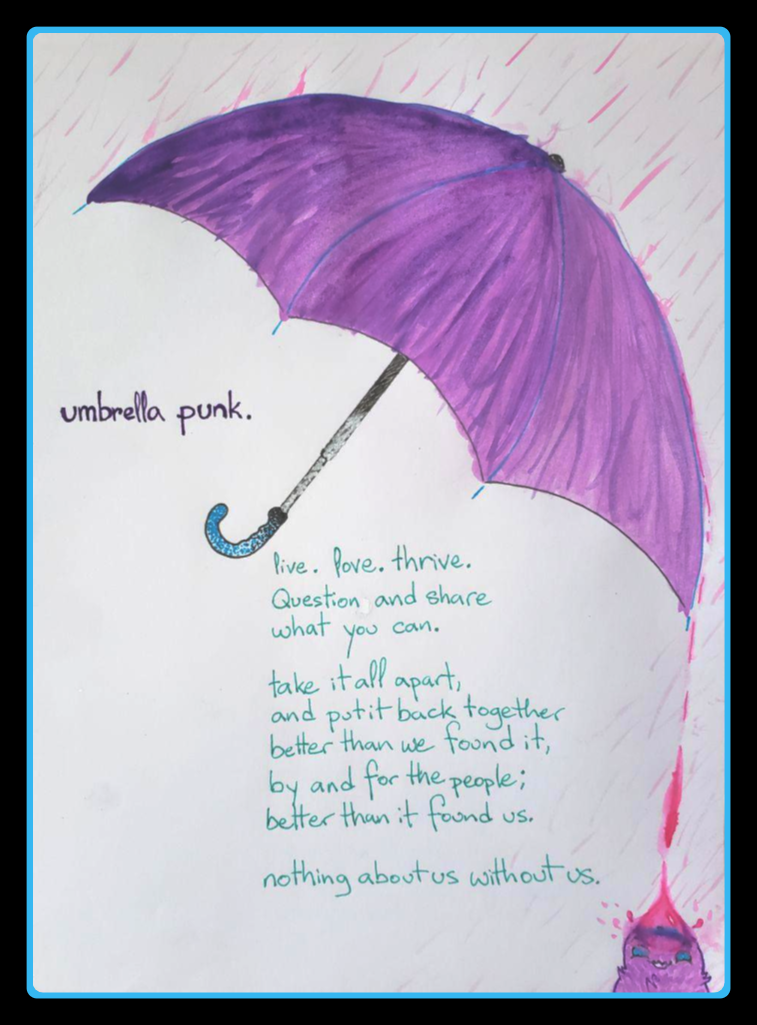 umbrella punk.
live. love. thrive.
Question and share
what you can.
take it all apart,
and put it back together
better than we found it,
by and for the people;
better than it found us.
nothing about us without us.